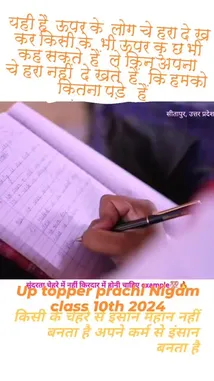 यही है ऊपर के लोग चेहरा देख
कर किसी के भी ऊपर कुछ भी
कह सकते हैं लेकिन अपना
चेहरा नहीं देखते हैं कि हमको
कितना पड़े हैं
सीतापुर, उत्तर प्रदेश
सुंदरता चेहरे में नहीं किरदार में होनी चाहिए exemple💯🔥
Up topper prachi Nigam
class 10th 2024
किसी के चेहरे से इंसान महान नहीं
बनता है अपने कर्म से इंसान
बनता है